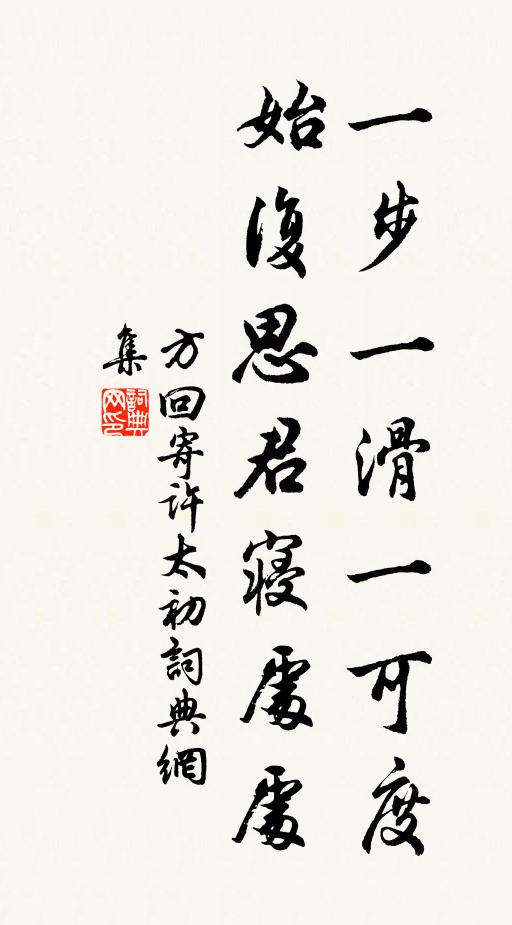 一步一滑一可度
始復思君寢處處
方回寄許太初詞典網
集
詞典網印